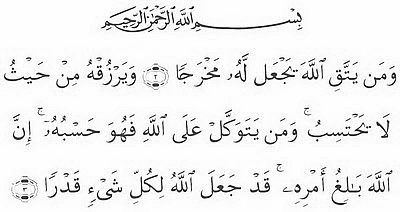 بِسْمِ اللَّهِ الرَّحْمَٰنِ الرَّحِيمِ
وَمَن يَتَّقِ اللَّهَ يَجْعَل لَّهُۥ مَخْرَجًا ٢ وَيَرْزُقْهُ مِنْ حَيْثُ
لَا يَحْتَسِبُ ۚ وَمَن يَتَوَكَّلْ عَلَى اللَّهِ فَهُوَ حَسْبُهُۥٓ ۚ إِنَّ
اللَّهَ بَـٰلِغُ أَمْرِهِۦ ۚ قَدْ جَعَلَ اللَّهُ لِكُلِّ شَىْءٍ قَدْرًا ٣